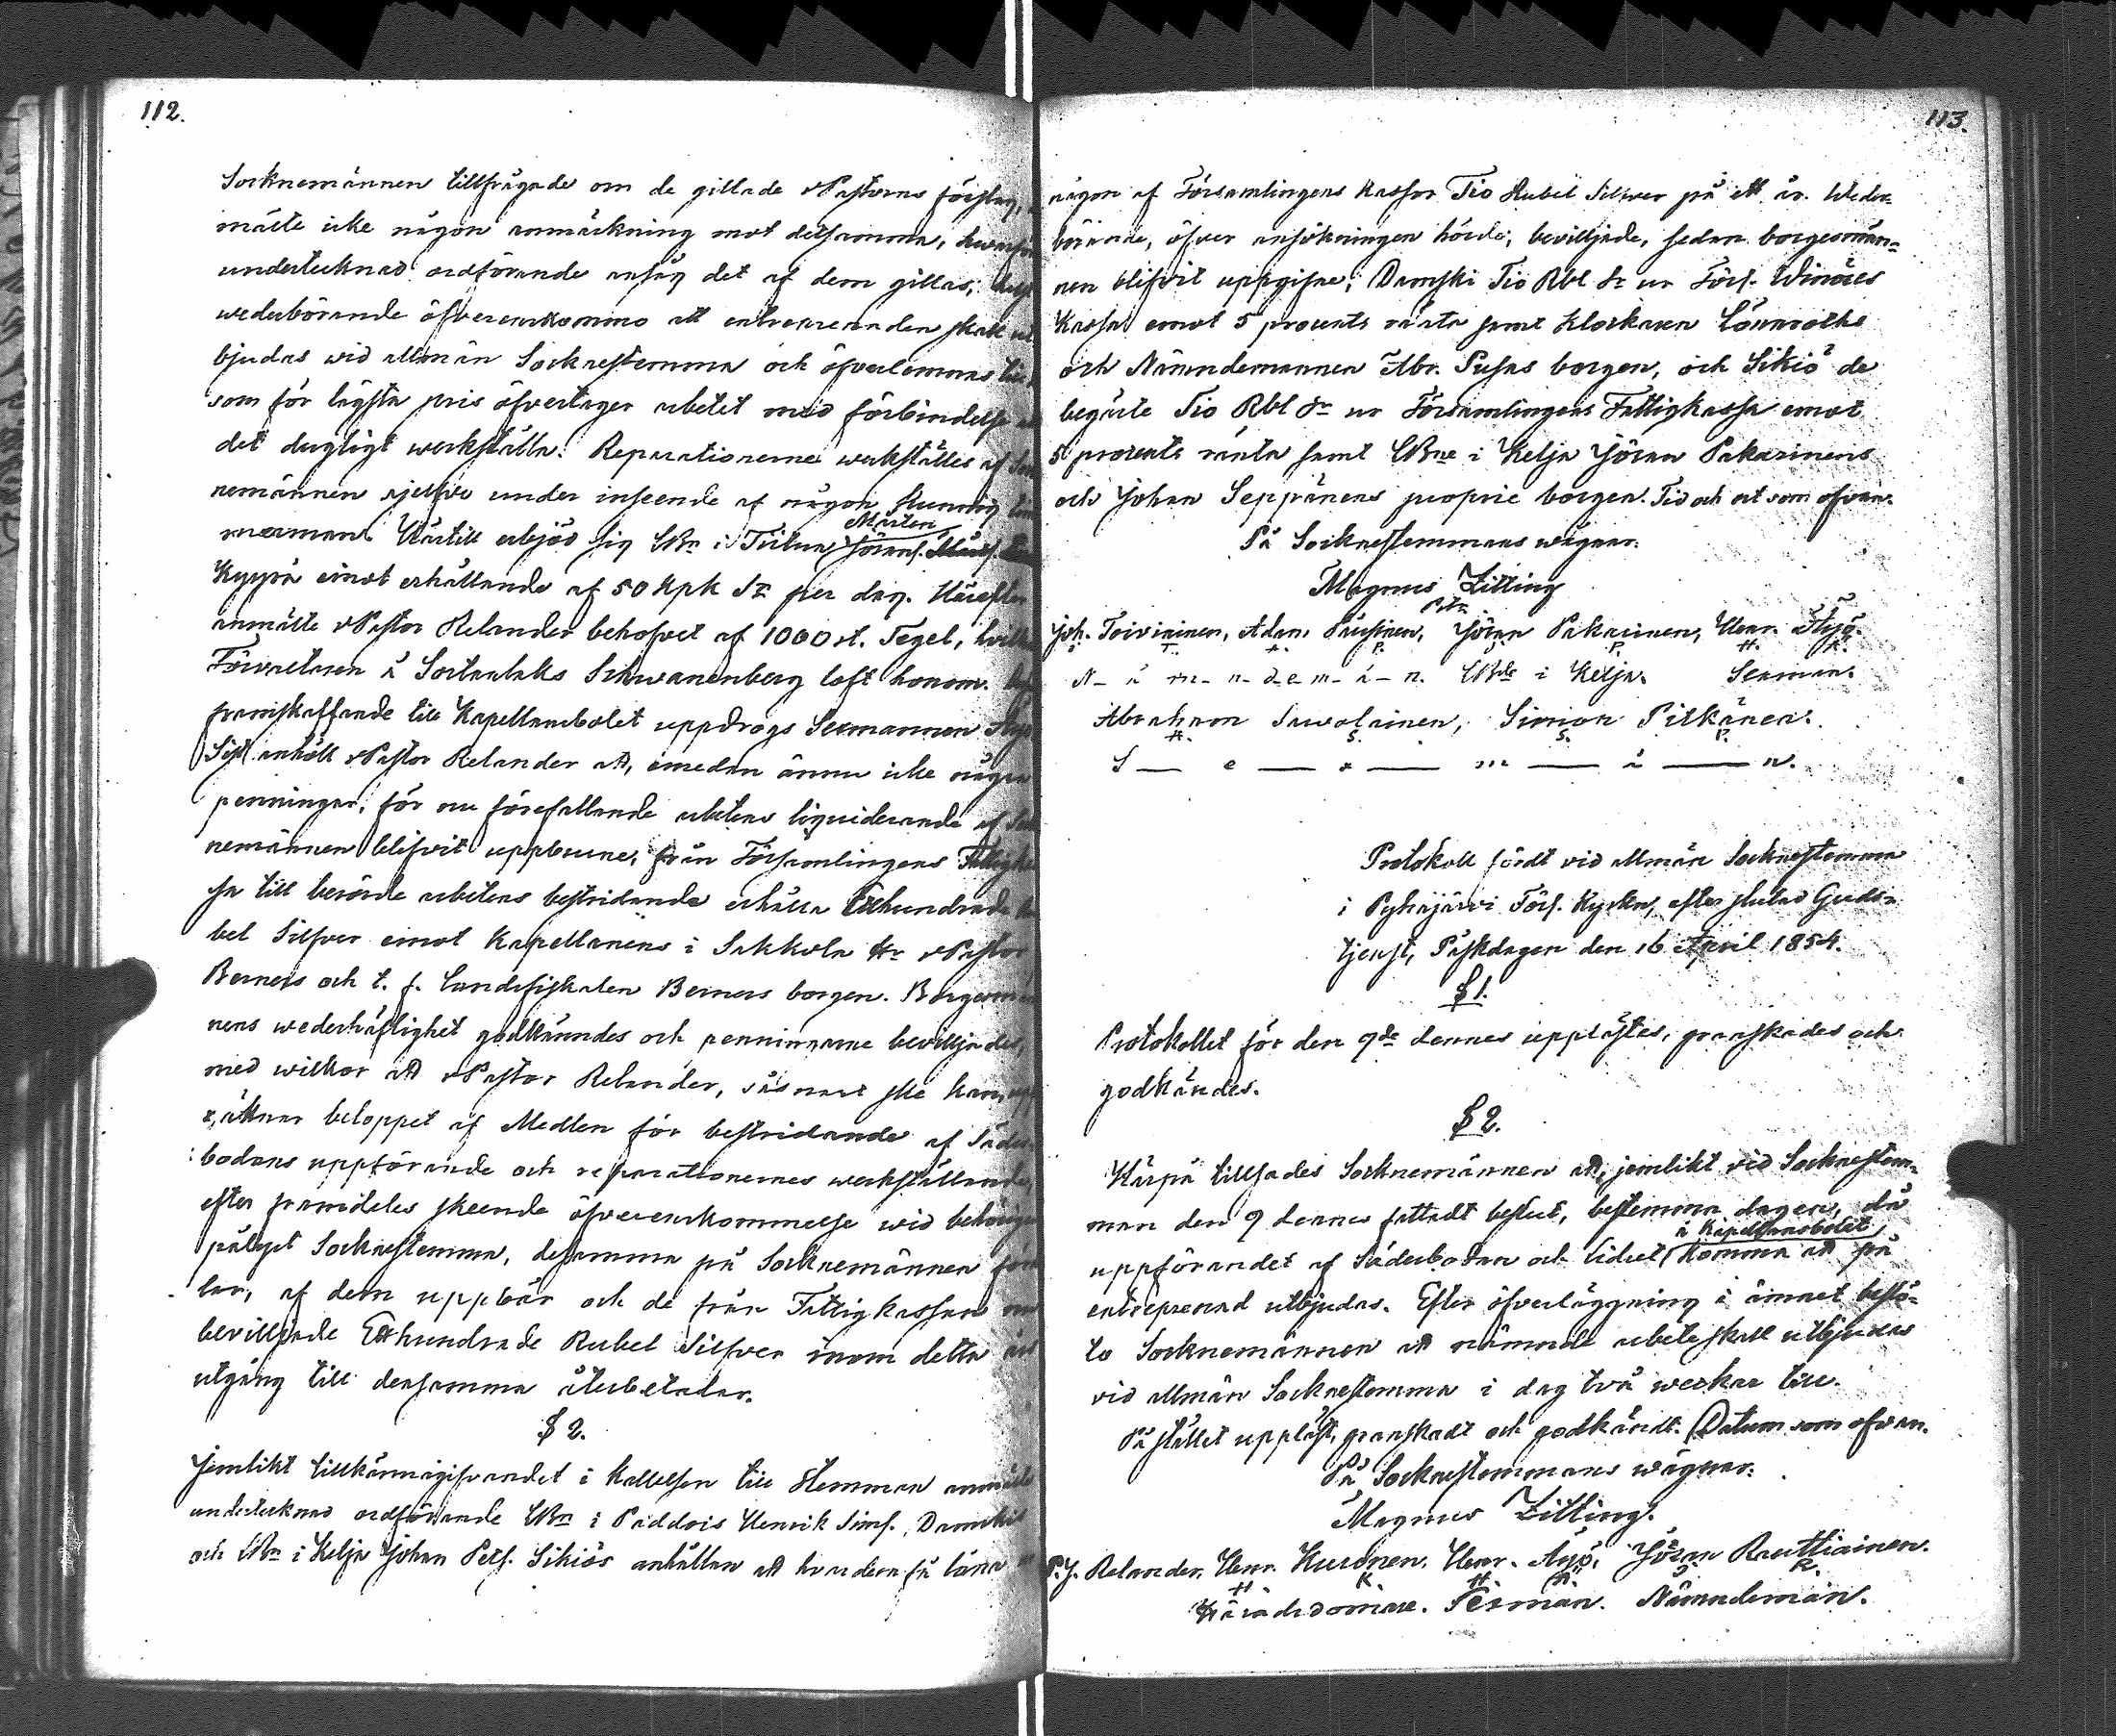 112.
Socknemännen tillfrågade om de gillade vPastorns förslag,
mälte icke någon anmärkning mot detsamma, hwarför
undertecknad ordförande ansåg det af dem gillas;
wederbörande öfverenskommo att entreprenaden skall
bjudas wid allmän Socknestemma och öfverlemnas
som för lägsta pris öfvertager arbetet med förbindelse
det dugligt werkställa. Reparationerne werkställes af
nemännen sjelfve under inseende af någon kunnig
mesman. Härtill erbjöd sig LBn i Tiitua Jöransf. Mårten
Kyyrö emot erhållande af 50 Kpk Sr per dag. Härefter
anmälte vPastor Relander behofvet af 1000 st. Tegel,
Förvaltaren å Sortanlaks Schwanenberg loft honom.
framskaffande till Kapellansbolet uppdrogs Sexmannen Äyö
Sist anhöll vPastor Relander att, emedan ännu icke någon
penningar, för nu förefallande arbetens liquiderande af
nemännen blifvit uppburne, från Församlingens
sa till berörde arbetens bestridande erhålla Etthundrade
bel Silfver emot Kapellanens i Sakkola Hr vPastor
Berners och t. f. Landsfiskalen Berners borgen.
nens wederhäftighet godkänndes och penningarne bevilljades,
med wilkor att vPastor Relander, såsnart ske kan,
rättnar beloppet af Medlen för bestridande af
bodans uppförande och reparationernes werkställande,
efter framdeles skeende öfverenskommelse wid behörigen
pålyst Socknestemma, desamma på Socknemännen
lar, af dem uppbär och de från Fattigkassan
bevilljade Etthundrade Rubel Silfver inom detta års
utgång till densamma återbetalar.
§ 2.
Jemlikt tillkännagifvandet i kallelsen till Stemman anmälte
undertecknad ordförande LBn i Paddois Henrik Simf. Damski
och LBn i Kelja Johan Petf. Sikiös anhållan att hvardera få låna
113.
någon af Församlingens Kassor Tio Rubel Silwer på ett år. Weder-
börande, öfver ansökningen hörde, bevilljade, sedan borgesmän-
nen blifvit uppgifne, Damski Tio Rbl Sr ur Förs. Winares
Kassa emot 5 procents ränta samt Klockaren Lönnroths
och Nämndemannen Abr. Pusas borgen, och Sikiö de
begärte Tio Rbl Sr ur Församlingens Fattigkassa emot
5 procents ränta samt LBne i Kelja Jöran Pakarinens
och Johan Seppänens proprie borgen. Tid och ort som ofvan.
På Socknestemmans wägnar.
Magnus Zitting
Joh. Toiviainen, Adam Päussinen, Jöran Pakarinen, Henr. Äyö.
N- ä- m- n- d- e- m- ä- n. LBde i Kelja. Sexman.
Abraham Sawolainen, Simon Pitkänen.
S — e — x — m — ä — n.
Protokoll fördt vid allmän Socknestemma
i Pyhäjärvi Förs. Kyrka, efter slutad Guds-
tjenst, Påskdagen den 16 April 1854.
§ 1.
Protokollet för den 9de dennes upplästes, granskades och
godkändes.
§ 2.
Härpå tillsades Socknemännen att, jemlikt vid Socknestem-
man den 9 dennes fattadt beslut, bestemma dagen, då
uppförandet af Sädesbodan och lidret å Kapellansbolet komma att på
entreprenad utbjudas. Efter öfverläggning i ämnet beslö-
to Socknemännen att nämnde arbete skall utbjudas
vid allmän Socknestemma i dag två weckor till.
På stället uppläst, granskadt och godkändt. Datum som ofvan.
På Socknestemmans wägnar:
Magnus Zitting.
P. J. Relander, Henr. Kuronen, Henr. Äyö, Jöran Rauttiainen.
Häradsdomare. Sexman. Nämndemän.